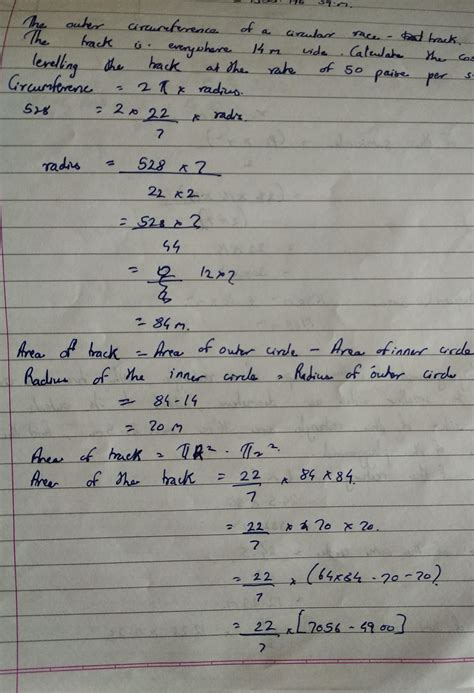 1300.146 sq.m.
The outer circumference of a circular race - track.
The track is everywhere 14 m wide. Calculate the cos
levelling the track at the rate of 50 paise per s
Circumference = 2 π × radius.
528 = 2 × 22/7 × radis.
radius = 528 × 7 / 22 × 2
= 528 × 7 / 44
= 12 × 7
= 84 m.
Area of track = Area of outer circle - Area of inner circle
Radius of the inner circle = Radius of outer circle
= 84 - 14
= 70 m
Area of track = πR² - πr²
Area of the track = 22/7 × 84 × 84.
= 22/7 × 70 × 70.
= 22/7 × (84×84 - 70-70)
= 22/7 × [7056 - 4900]